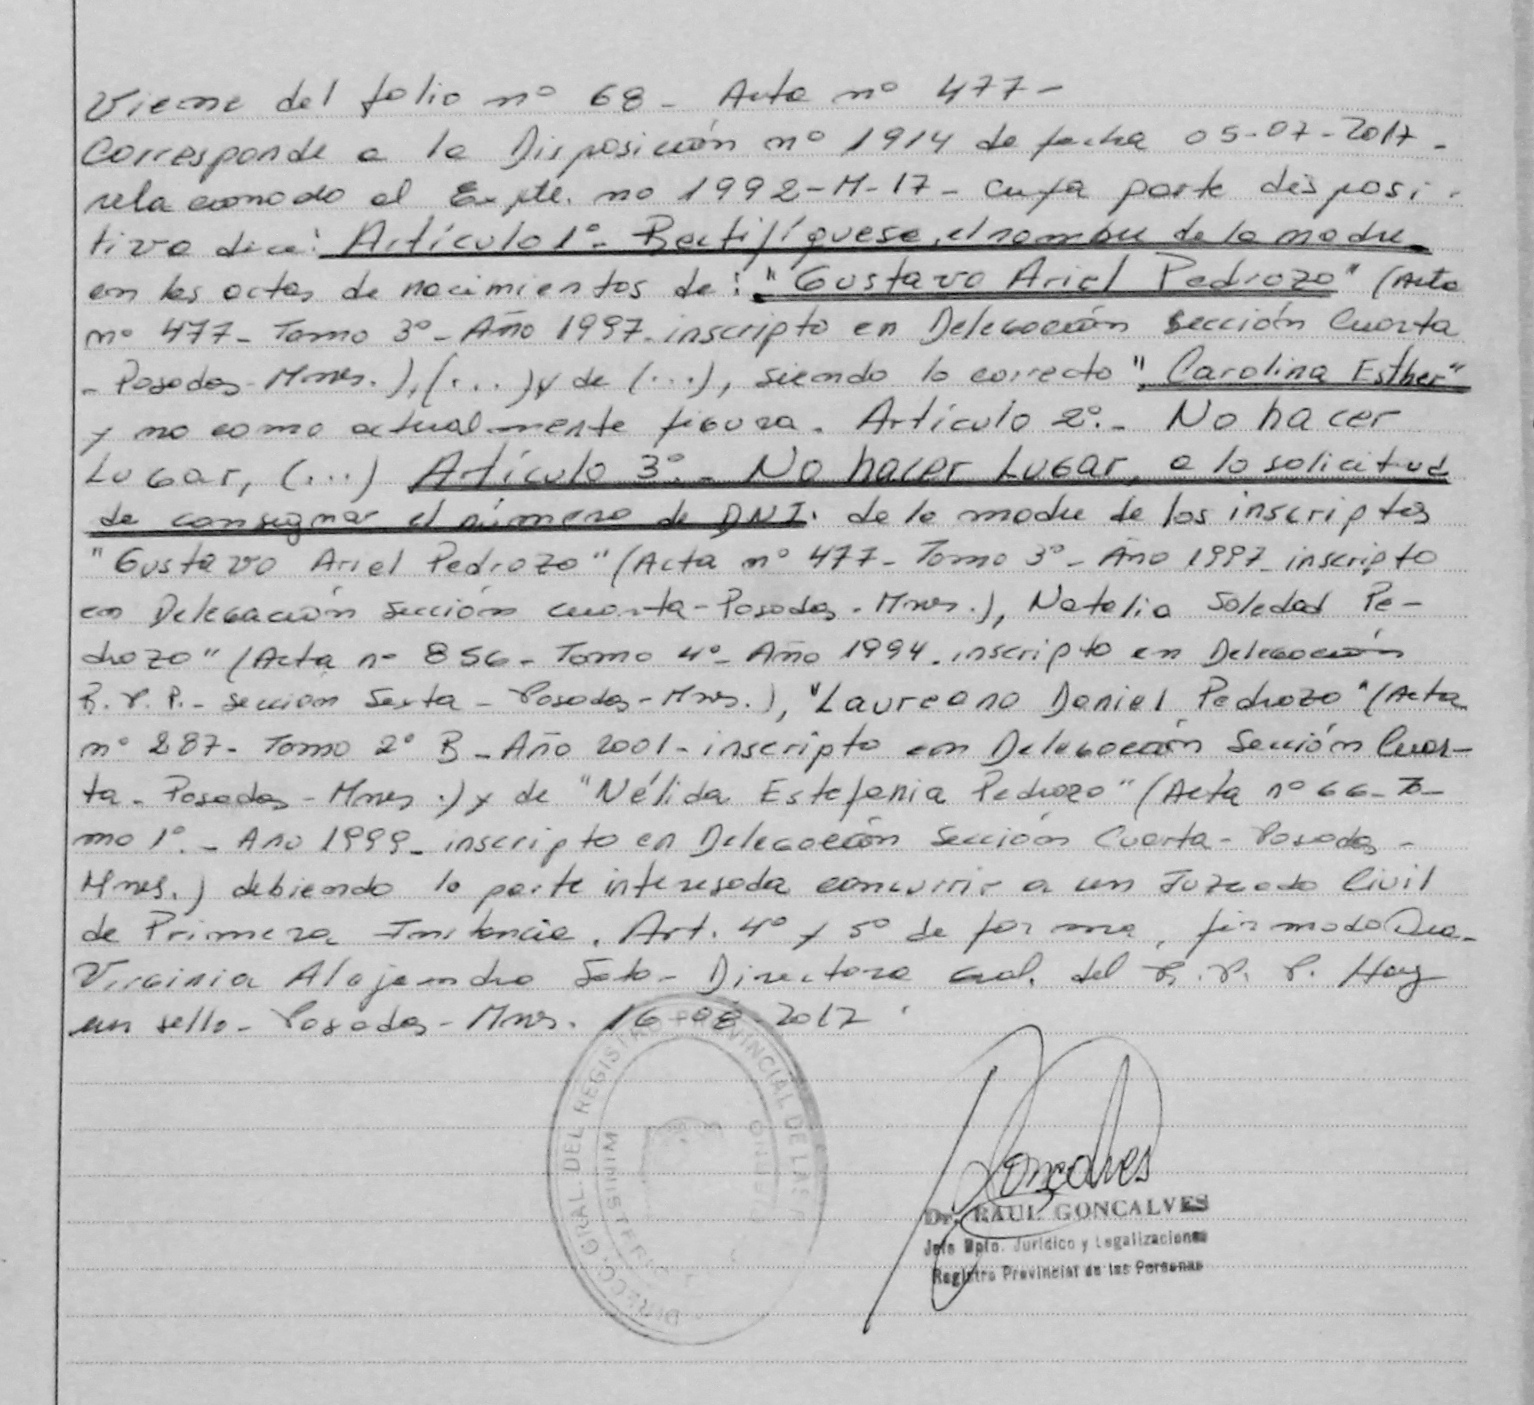 Viene del folio nº 68 - Acta nº 477 -
Corresponde a la Disposición nº 1914 de fecha 05-07-2017 -
relacionado al Expte. no 1992-M-17 - cuya parte disposi-
tiva dice: Artículo 1º- Rectifíquese, el nombre de la madre
en las actas de nacimientos de: "Gustavo Ariel Pedrozo" (Acta
nº 477 - Tomo 3º - Año 1997 - inscripto en Delegación Sección Cuarta
- Posadas - Mnes.), (...) y de (...), siendo lo correcto "Carolina Esther"
y no como actualmente figura. Artículo 2º.- No hacer
Lugar, (...) Artículo 3º.- No hacer Lugar, a la solicitud
de consignar el número de DNI. de la madre de los inscriptos
"Gustavo Ariel Pedrozo" (Acta nº 477 - Tomo 3º - Año 1997 - inscripto
en Delegación Sección cuarta - Posadas - Mnes.), Natalia Soledad Pe-
drozo" (Acta nº 856 - Tomo 4º - Año 1994 - inscripto en Delegación
R. P. P. - Sección Sexta - Posadas - Mnes.), "Laureano Daniel Pedrozo" (Acta
nº 287 - Tomo 2º B - Año 2001 - inscripto en Delegación Sección Cuar-
ta - Posadas - Mnes.) y de "Nélida Estefania Pedrozo" (Acta nº 66 - To-
mo 1º. - Año 1999 - inscripto en Delegación Sección Cuarta - Posadas -
Mnes.) debiendo la parte interesada concurrir a un Juzgado Civil
de Primera Instancia. Art. 4º y 5º de forma, firmado Dra.
Virginia Alejandra Soto - Directora Gral. del R. P. P. Hay
un sello - Posadas - Mnes. 16-08-2017.
DIRECC. GRAL. DEL REGISTRO PROVINCIAL DE LAS
MINISTERIO
Goncalves
Dr. RAUL GONCALVES
Jefe Dpto. Jurídico y Legalizaciones
Registro Provincial de las Personas